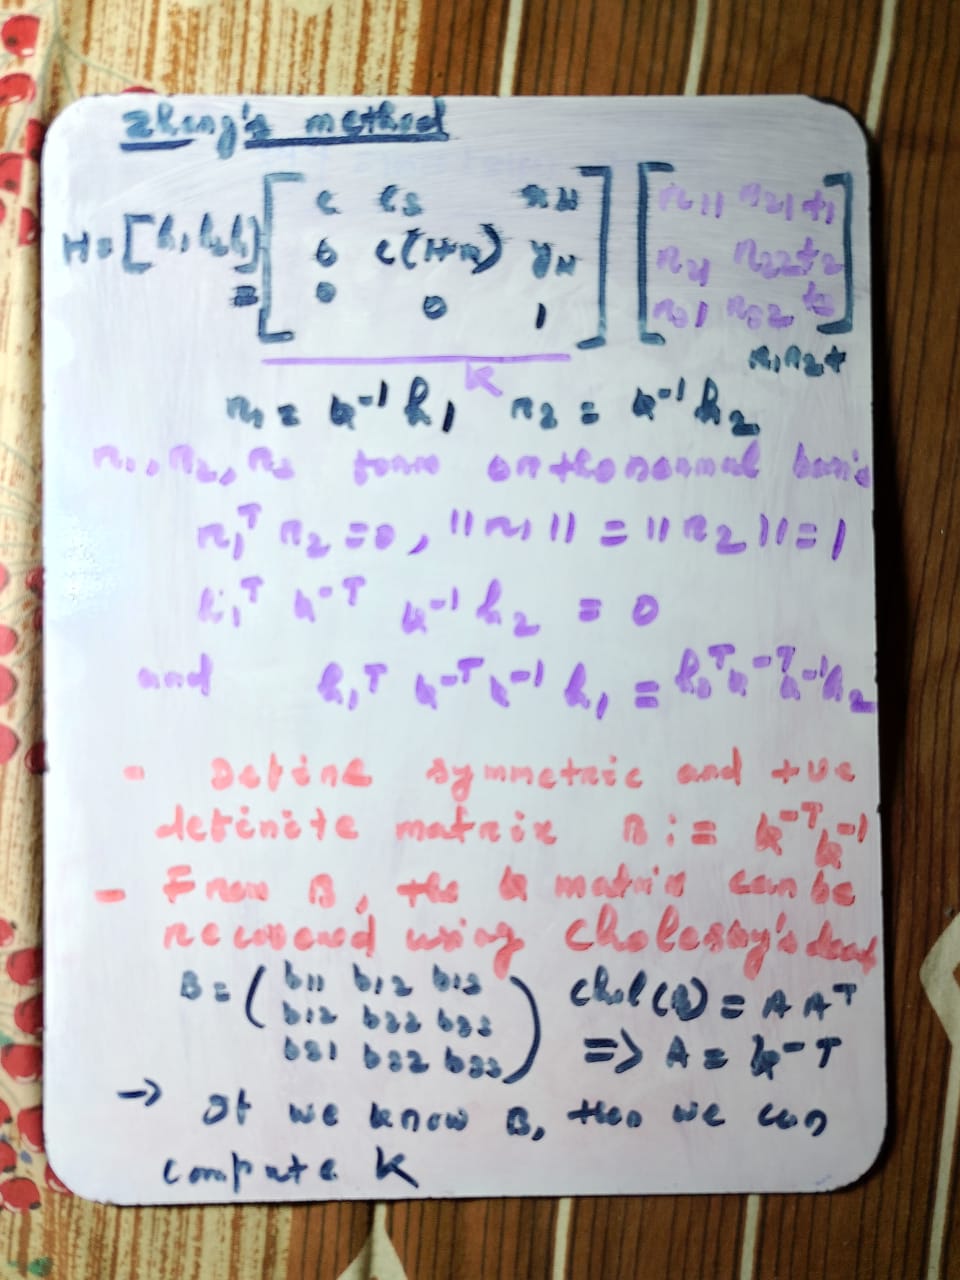 Zhang's method
H = [h₁ h₂ h₃]
= [ c cs x_H ; 0 c(1+m) y_H ; 0 0 1 ] [ r11 r21 t1 ; r21 r22 t2 ; r31 r32 t3 ]
K r₁ r₂ t
r₁ = k⁻¹ h₁ r₂ = k⁻¹ h₂
r₁, r₂, r₃ form orthonormal basis
r₁ᵀ r₂ = 0, ||r₁|| = ||r₂|| = 1
h₁ᵀ k⁻ᵀ k⁻¹ h₂ = 0
and h₁ᵀ k⁻ᵀ k⁻¹ h₁ = h₂ᵀ k⁻ᵀ k⁻¹ h₂
- Define symmetric and +ve
definite matrix B := k⁻ᵀ k⁻¹
- From B, the k matrix can be
recovered using Cholesky's
B = ( b11 b12 b13 ; b12 b22 b23 ; b31 b32 b33 ) chol(B) = A Aᵀ
=> A = k⁻ᵀ
→ If we know B, then we can
compute K